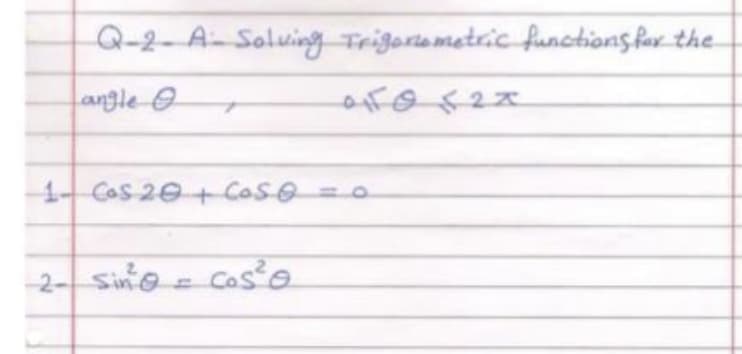 Q-2- A:- Solving Trigonometric functions for the
angle θ , 0 ≤ θ ≤ 2π
1- Cos 2θ + Cos θ = 0
2- Sin²θ = Cos²θ